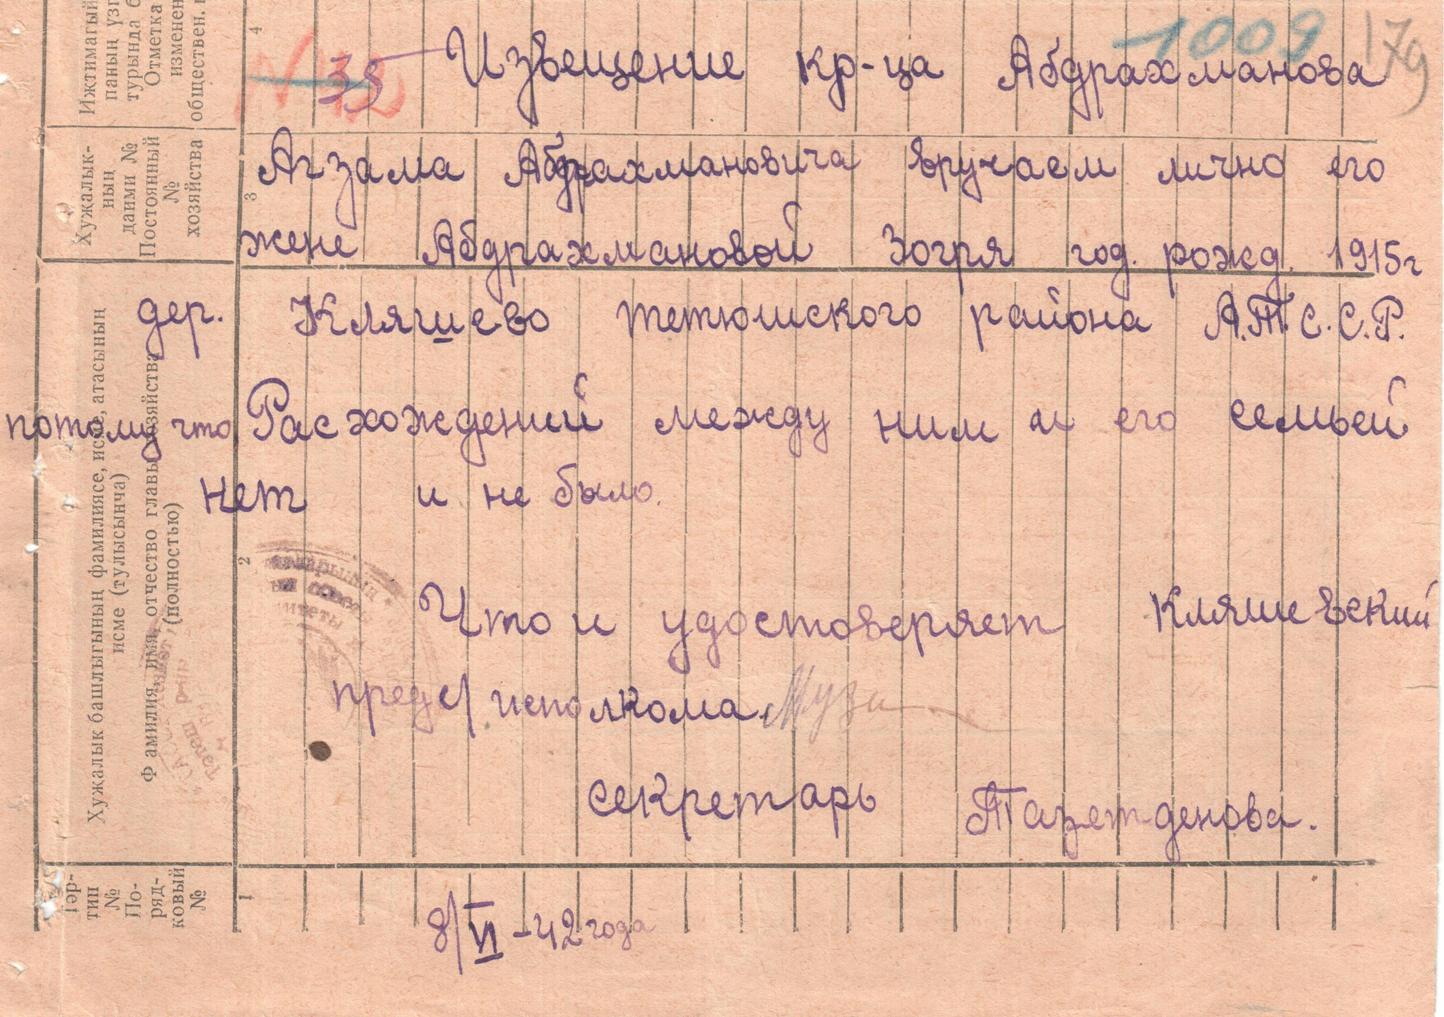 1009 179
35 Извещение кр-ца Абдрахманова
Агзама Абдрахмановича вручаем лично его
жене Абдрахмановой Зогря год. рожд. 1915г
дер. Кляшево тетюшского района А.Т.С.С.Р.
потому что Расхождений между ним и его семьей
нет и не было.
Что и удостоверяет Кляшевский
пред с/исполкома.
секретарь
8/VI-42 года
4
общественн.
Хужалык-
ның
даими №
Постоянный
№
хозяйства
3
Хужалык башлыгының фамилиясе, исме, атасының
исме (тулысынча)
Фамилия, имя, отчество главы хозяйства
(полностью)
2
Тәр-
тип
№
По-
ряд-
ковый
№
1